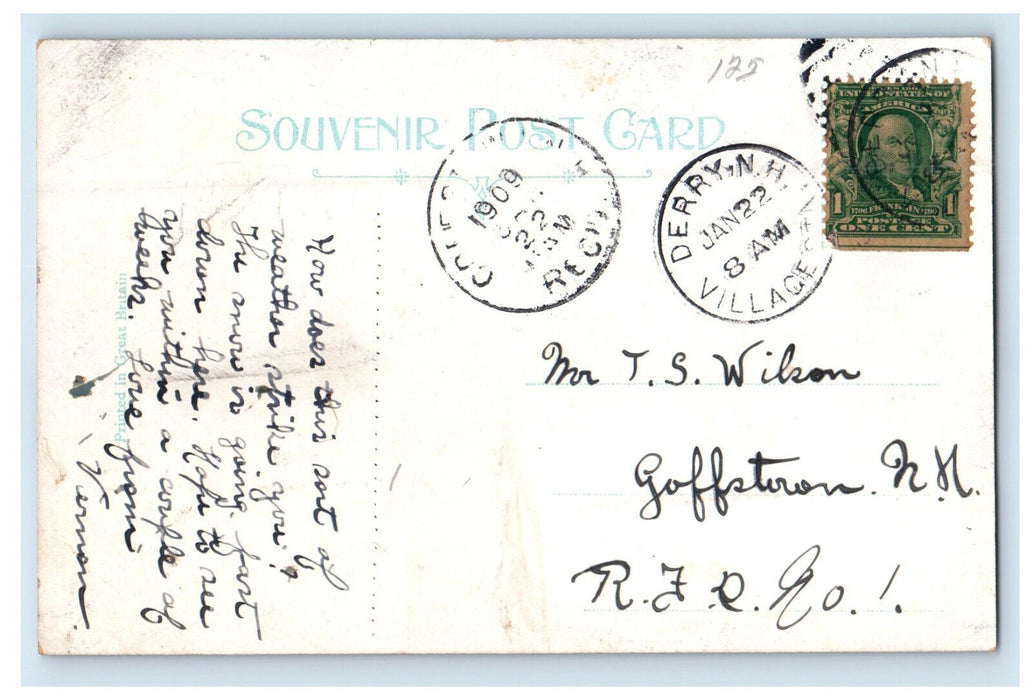 125
SOUVENIR POST CARD
1909
22
M
REC'D
DERRY, N.H.
JAN 22
8 AM
VILLAGE
UNITED STATES OF
AMERICA
1 FRANKLIN 1
POSTAGE
ONE CENT
How does this sort of
weather strike you?
The snow is going fast
down here. Hope to see
you within a couple of
weeks. Love from
Vernon.
Printed in Great Britain
Mr T. S. Wilson
Goffstown. N.H.
R.F.D. No. 1.